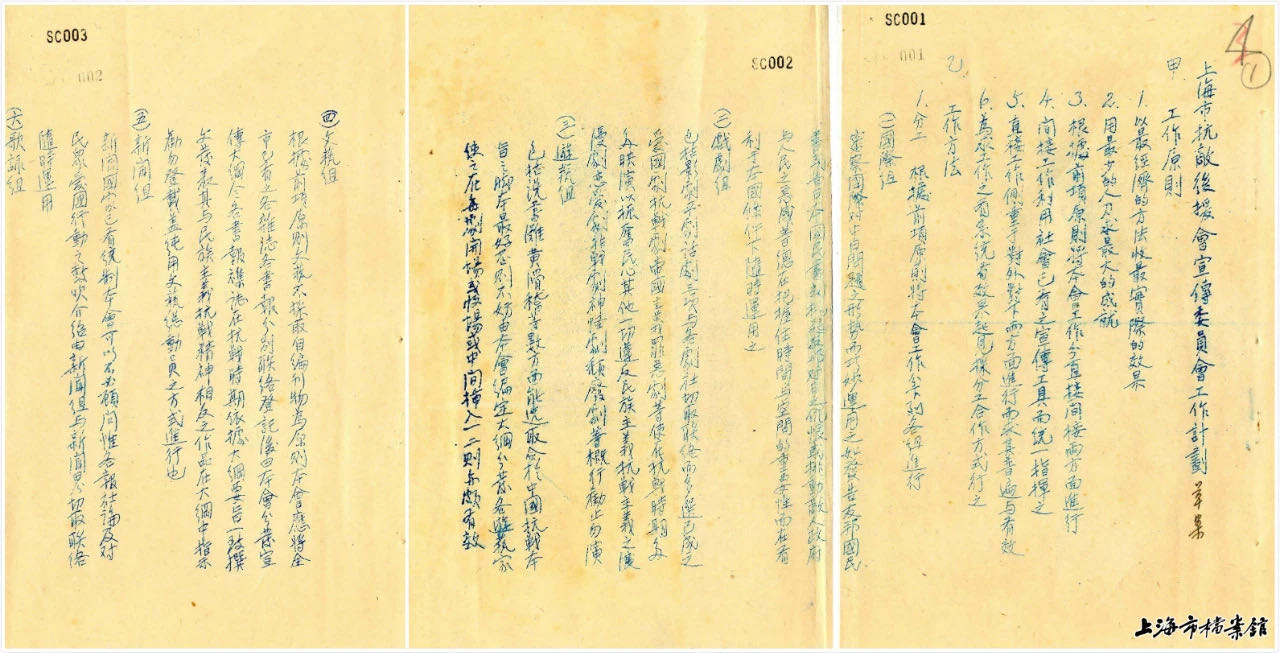 SC001
001
1
上海市抗敵後援會宣傳委員會工作計劃 草案
甲 工作原則
1. 以最經濟的方法收最實際的效果
2. 用最少的人力求最大的成就
3. 根據前項原則將本會工作分直接間接兩方面進行
4. 間接工作利用社會已有之宣傳工具而統一指揮之
5. 直接工作側重于對外對下兩方面進行而求其普遍与有效
6. 為求工作之有系統有效果起見採分工合作方式行之
乙 工作方法
1. 分工 根據前項原則將本會工作分下列各組進行
(一)國際組
密察國際對中日問題之形勢而巧妙運用之如發告友邦國民
SC002
与人民之惡感普遍在把握住時間与空間的重要性而在有
利于本國條件下隨時運用之
(二)戲劇組
包括影劇平劇話劇三項与各劇社切取聯絡而分選已成之
愛國劇抗戰劇帝國主義罪惡劇等使在抗戰時期多
多映演以振奮民心其他一切違反民族主義抗戰主義之廢
(三)遊藝組
包括說書灘黃滑稽等數方面能選取合於中國抗戰本
旨之脚本最好否則不妨由本會編定大綱分發各遊藝家
使之在每劇開場或快場或中間插入一二則亦頗有效
SC003
002
(四)文藝組
根據前項原則文藝不採取自編刊物為原則本會應將全
市已有之各雜誌各書報分別聯絡登記後由本會分發宣
傳大綱令各書報雜誌在抗戰時期依據大綱要旨一致撰
文發表其与民族主義抗戰精神相反之作品在大綱中指示
勸勿登載蓋純用文藝總動員之方式進行也
(五)新聞組
新聞國家已有統制本會可以不必顧問惟各報社論及對
民眾愛國行動之鼓吹介紹由新聞組与新聞界切取聯絡
隨時運用
(六)歌詠組
上海市檔案館